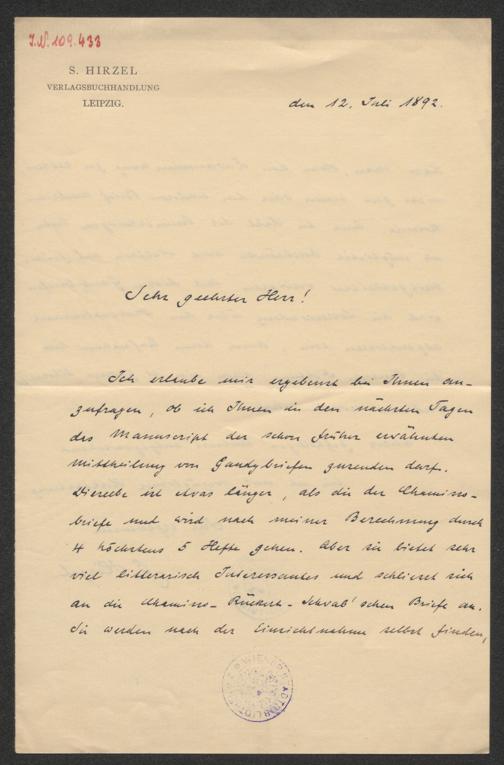 I.N. 109.433
S. HIRZEL
VERLAGSBUCHHANDLUNG
LEIPZIG.
den 12. Juli 1892.
Sehr geehrter Herr!
Ich erlaube mir ergebenst bei Ihnen an-
zufragen, ob ich Ihnen in den nächsten Tagen
das Manuscript der schon früher erwähnten
Mittheilung von Gaudybriefen zusenden darf.
Dieselbe ist etwas länger, als die der Chamisso-
briefe und wird nach meiner Berechnung durch
4 höchstens 5 Hefte gehen. Aber sie bietet sehr
viel litterarisch Interessantes und schliesst sich
an die Chamisso-Rückert-Schwab'schen Briefe an.
Sie werden nach der Einsichtnahme selbst finden,